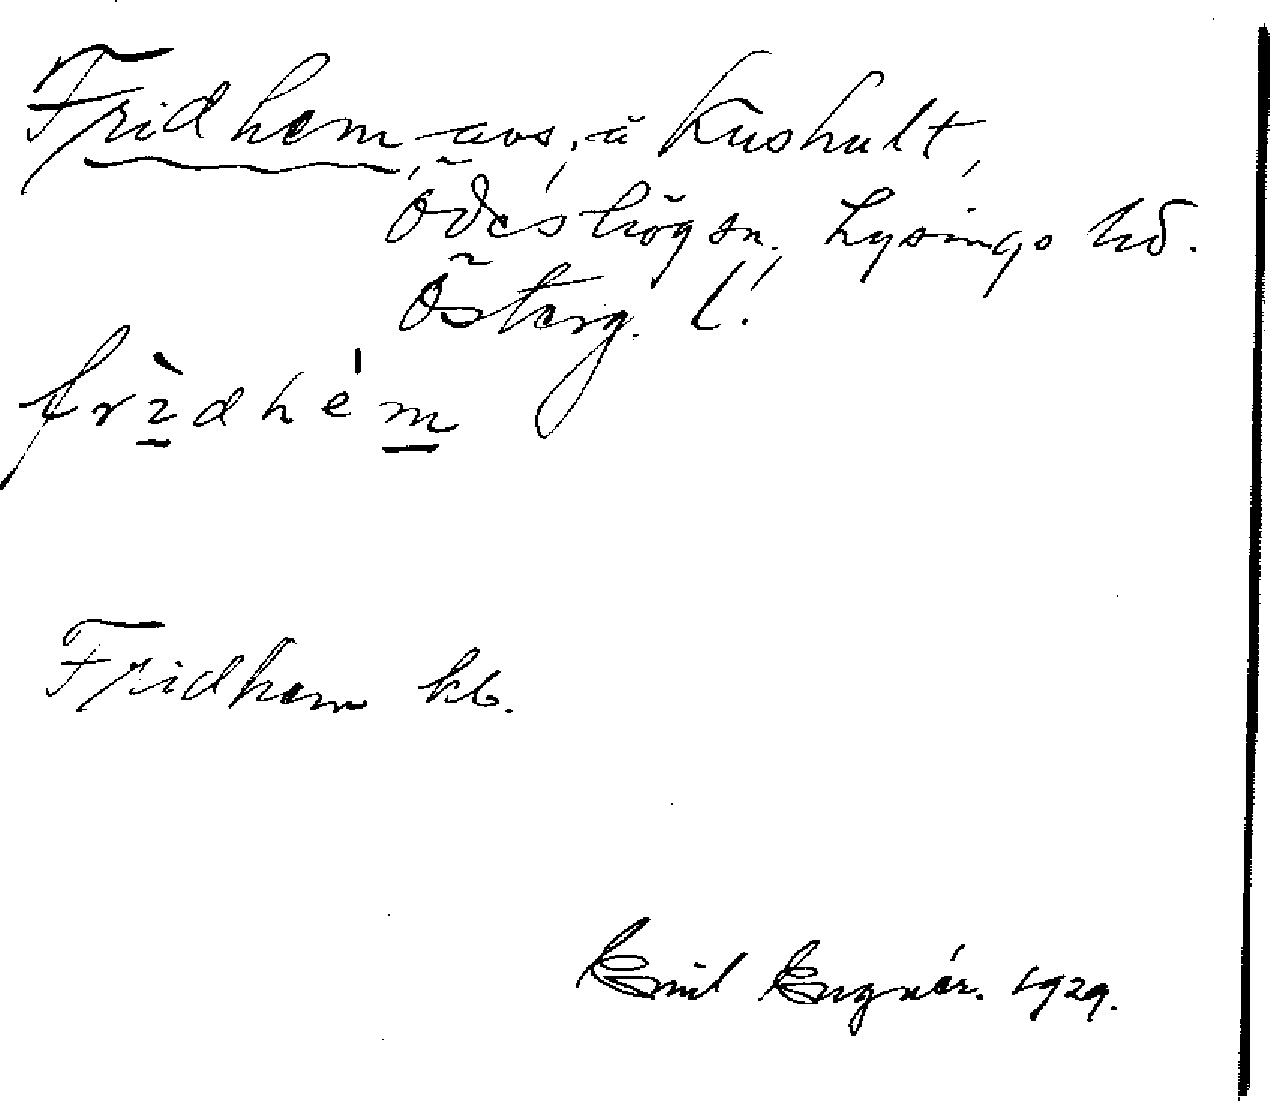 Fridhem, avs. å Kushult,
Ödeshög sn., Lysings hd.
Österg. l.
frìdhém
Fridhem kb.
Emil Engnér. 1929.